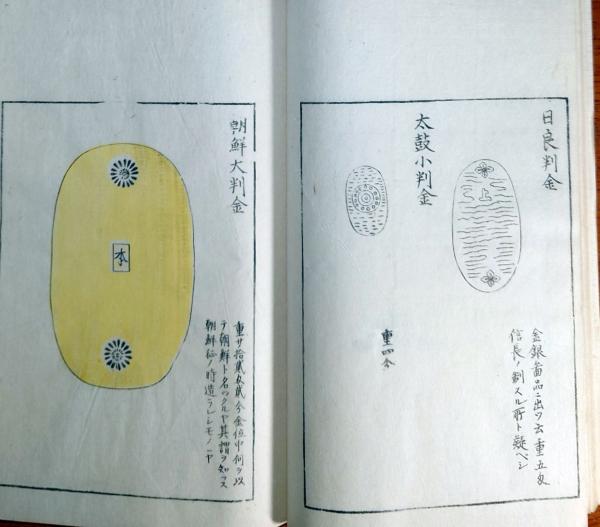 日良判金
上
金銀図品ニ出ツ云重五匁
信長ノ制スル所ト疑ベシ
太鼓小判金
重四分
朝鮮大判金
本
重サ拾貳匁貳分金位中何ヲ以
テ朝鮮ト名ツクルヤ其謂ヲ知ラス
朝鮮征ノ時造ラレシモノヤ